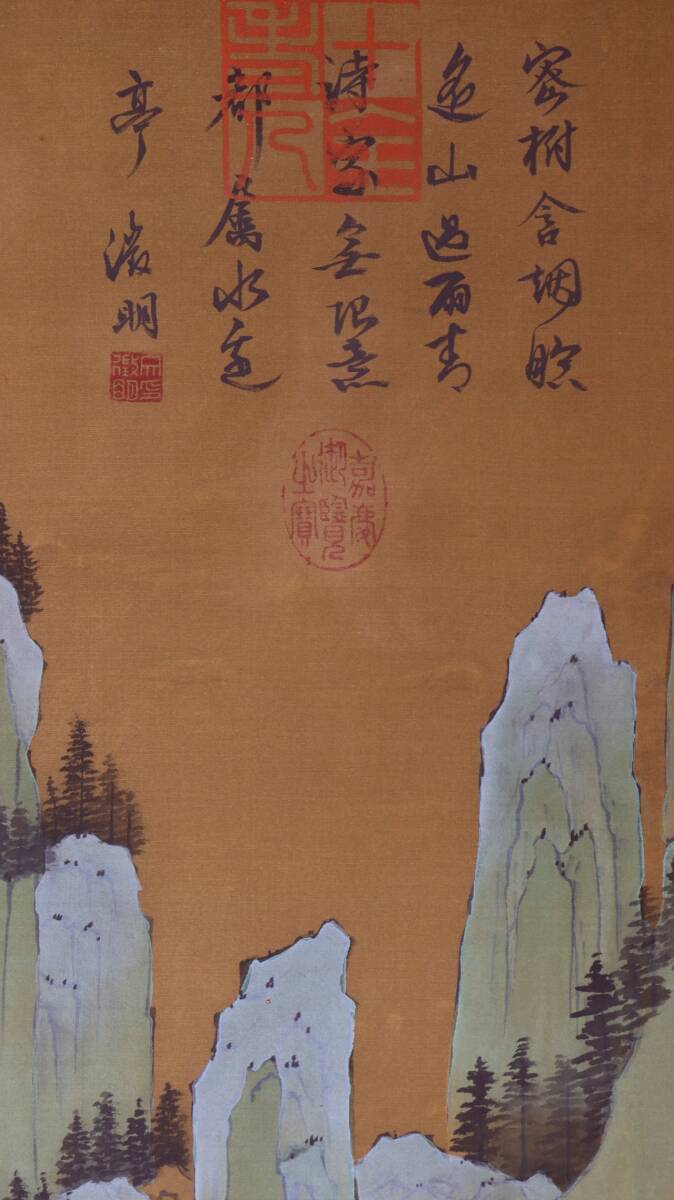 密樹含烟暝
遠山過雨青
詩家無限意
都屬水邊
亭 徵明
嘉慶
御覽
之寶